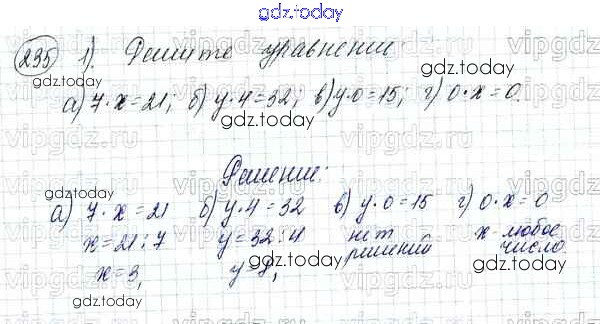 gdz.today
235 1). Решите уравнение
gdz.today
а) 7·x=21; б) y·4=32; в) y·0=15; г) 0·x=0.
gdz.today
Решение:
gdz.today
а) 7·x=21 б) y·4=32 в) y·0=15 г) 0·x=0
x=21:7 y=32:4 нет решений x-любое число
x=3, y=8,
gdz.today gdz.today gdz.today
vipgdz.ru